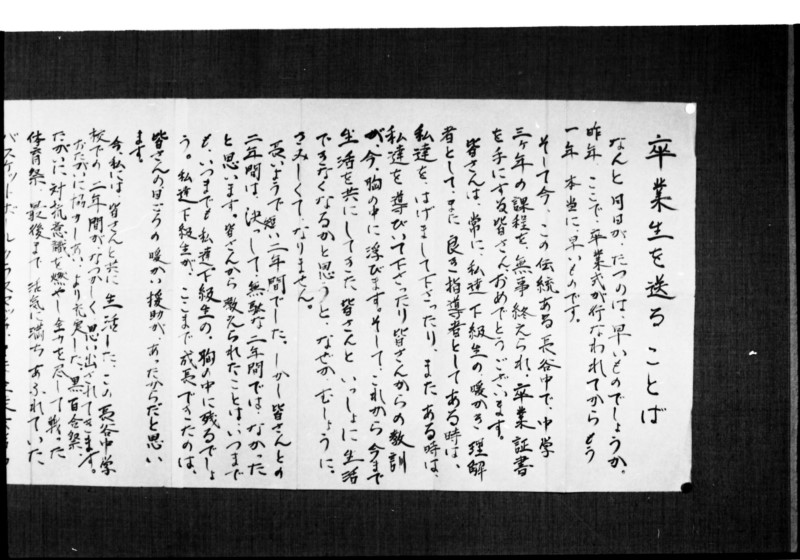 卒業生を送ることば
なんと月日が、たつのは、早いものでしょうか。
昨年、ここで、卒業式が行なわれてから、もう
一年、本当に、早いものです。
そして今、この伝統ある長谷中で、中学
三ヶ年の課程を、無事終えられ、卒業証書
を手にする皆さんおめでとうございます。
皆さんは、常に、私達下級生の、暖かき理解
者として、また良き指導者としてある時は、
私達を、はげまして下さったり、またある時は、
私達を導びいて下さったり皆さんからの教訓
が、今、胸の中に浮びます。そして、これから今まで
生活を共にしてきた皆さんと、いっしょに生活
できなくなるかと思うと、なぜか、むしょうに、
さみしくてなりません。
長いようで短い二年間でした。しかし皆さんとの
二年間は、決っして無駄な二年間では、なかった
と思います。皆さんから教えられたことは、いつまで
も、いつまでも私達下級生の、胸の中に残るでしょ
う。私達下級生が、ここまで成長できたのは、
皆さんの日ごろの暖かい援助が、あったからだと思い
ます。
今、私には、皆さんと共に生活した、この長谷中学
校での、二年間がなつかしく思い出されてきます。
たがいに協力しあい、より充実した、黒百合祭、
たがいに対抗意識を燃やし全力を尽して戦った
体育祭、最後まで活気に満ちあふれていた、
バスケットボールクラスマッチ、